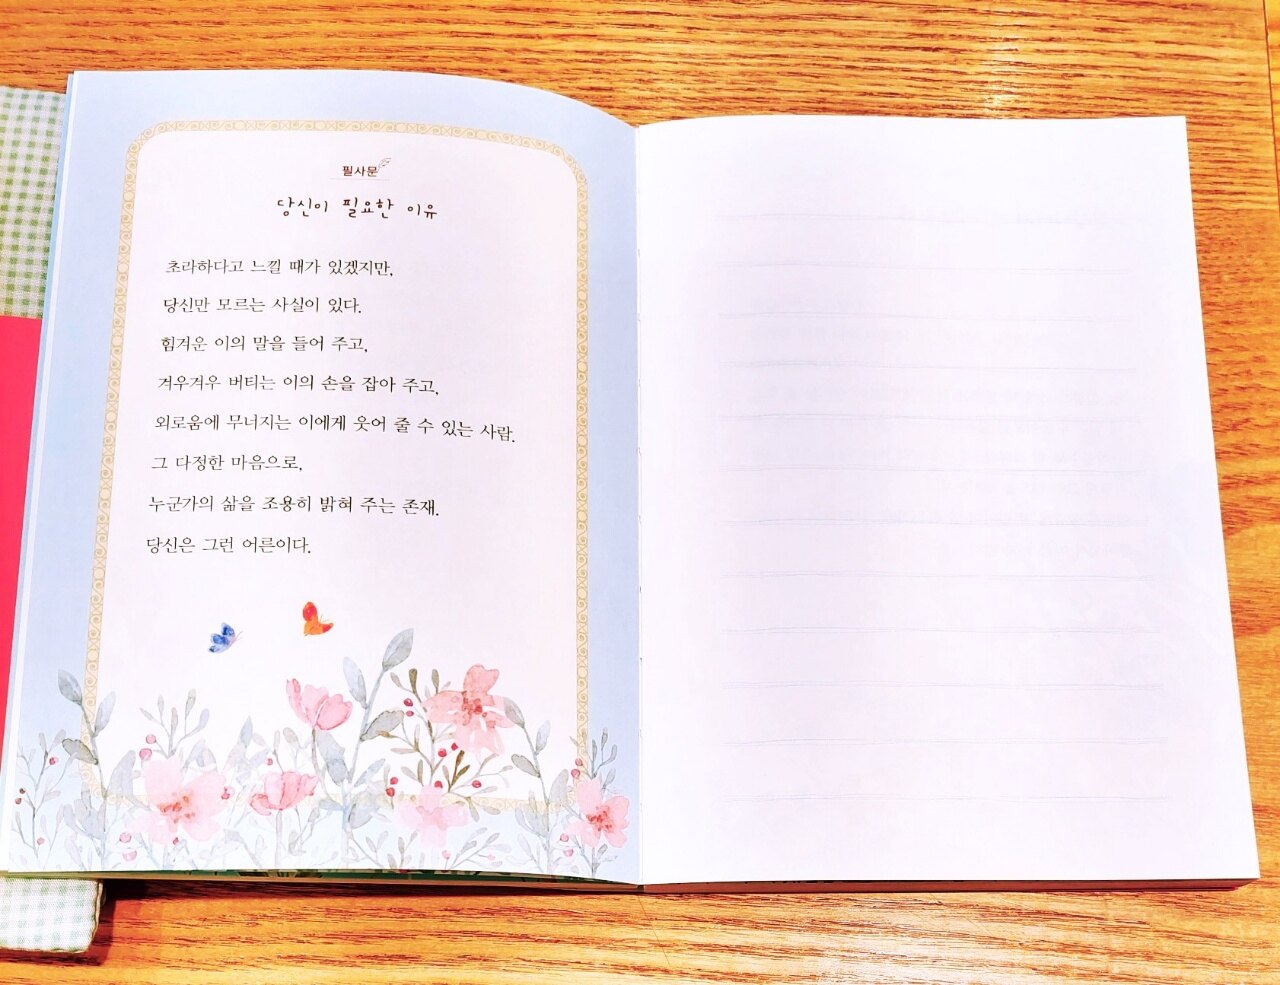 필사문
당신이 필요한 이유
초라하다고 느낄 때가 있겠지만,
당신만 모르는 사실이 있다.
힘겨운 이의 말을 들어 주고,
겨우겨우 버티는 이의 손을 잡아 주고,
외로움에 무너지는 이에게 웃어 줄 수 있는 사람.
그 다정한 마음으로,
누군가의 삶을 조용히 밝혀 주는 존재.
당신은 그런 어른이다.